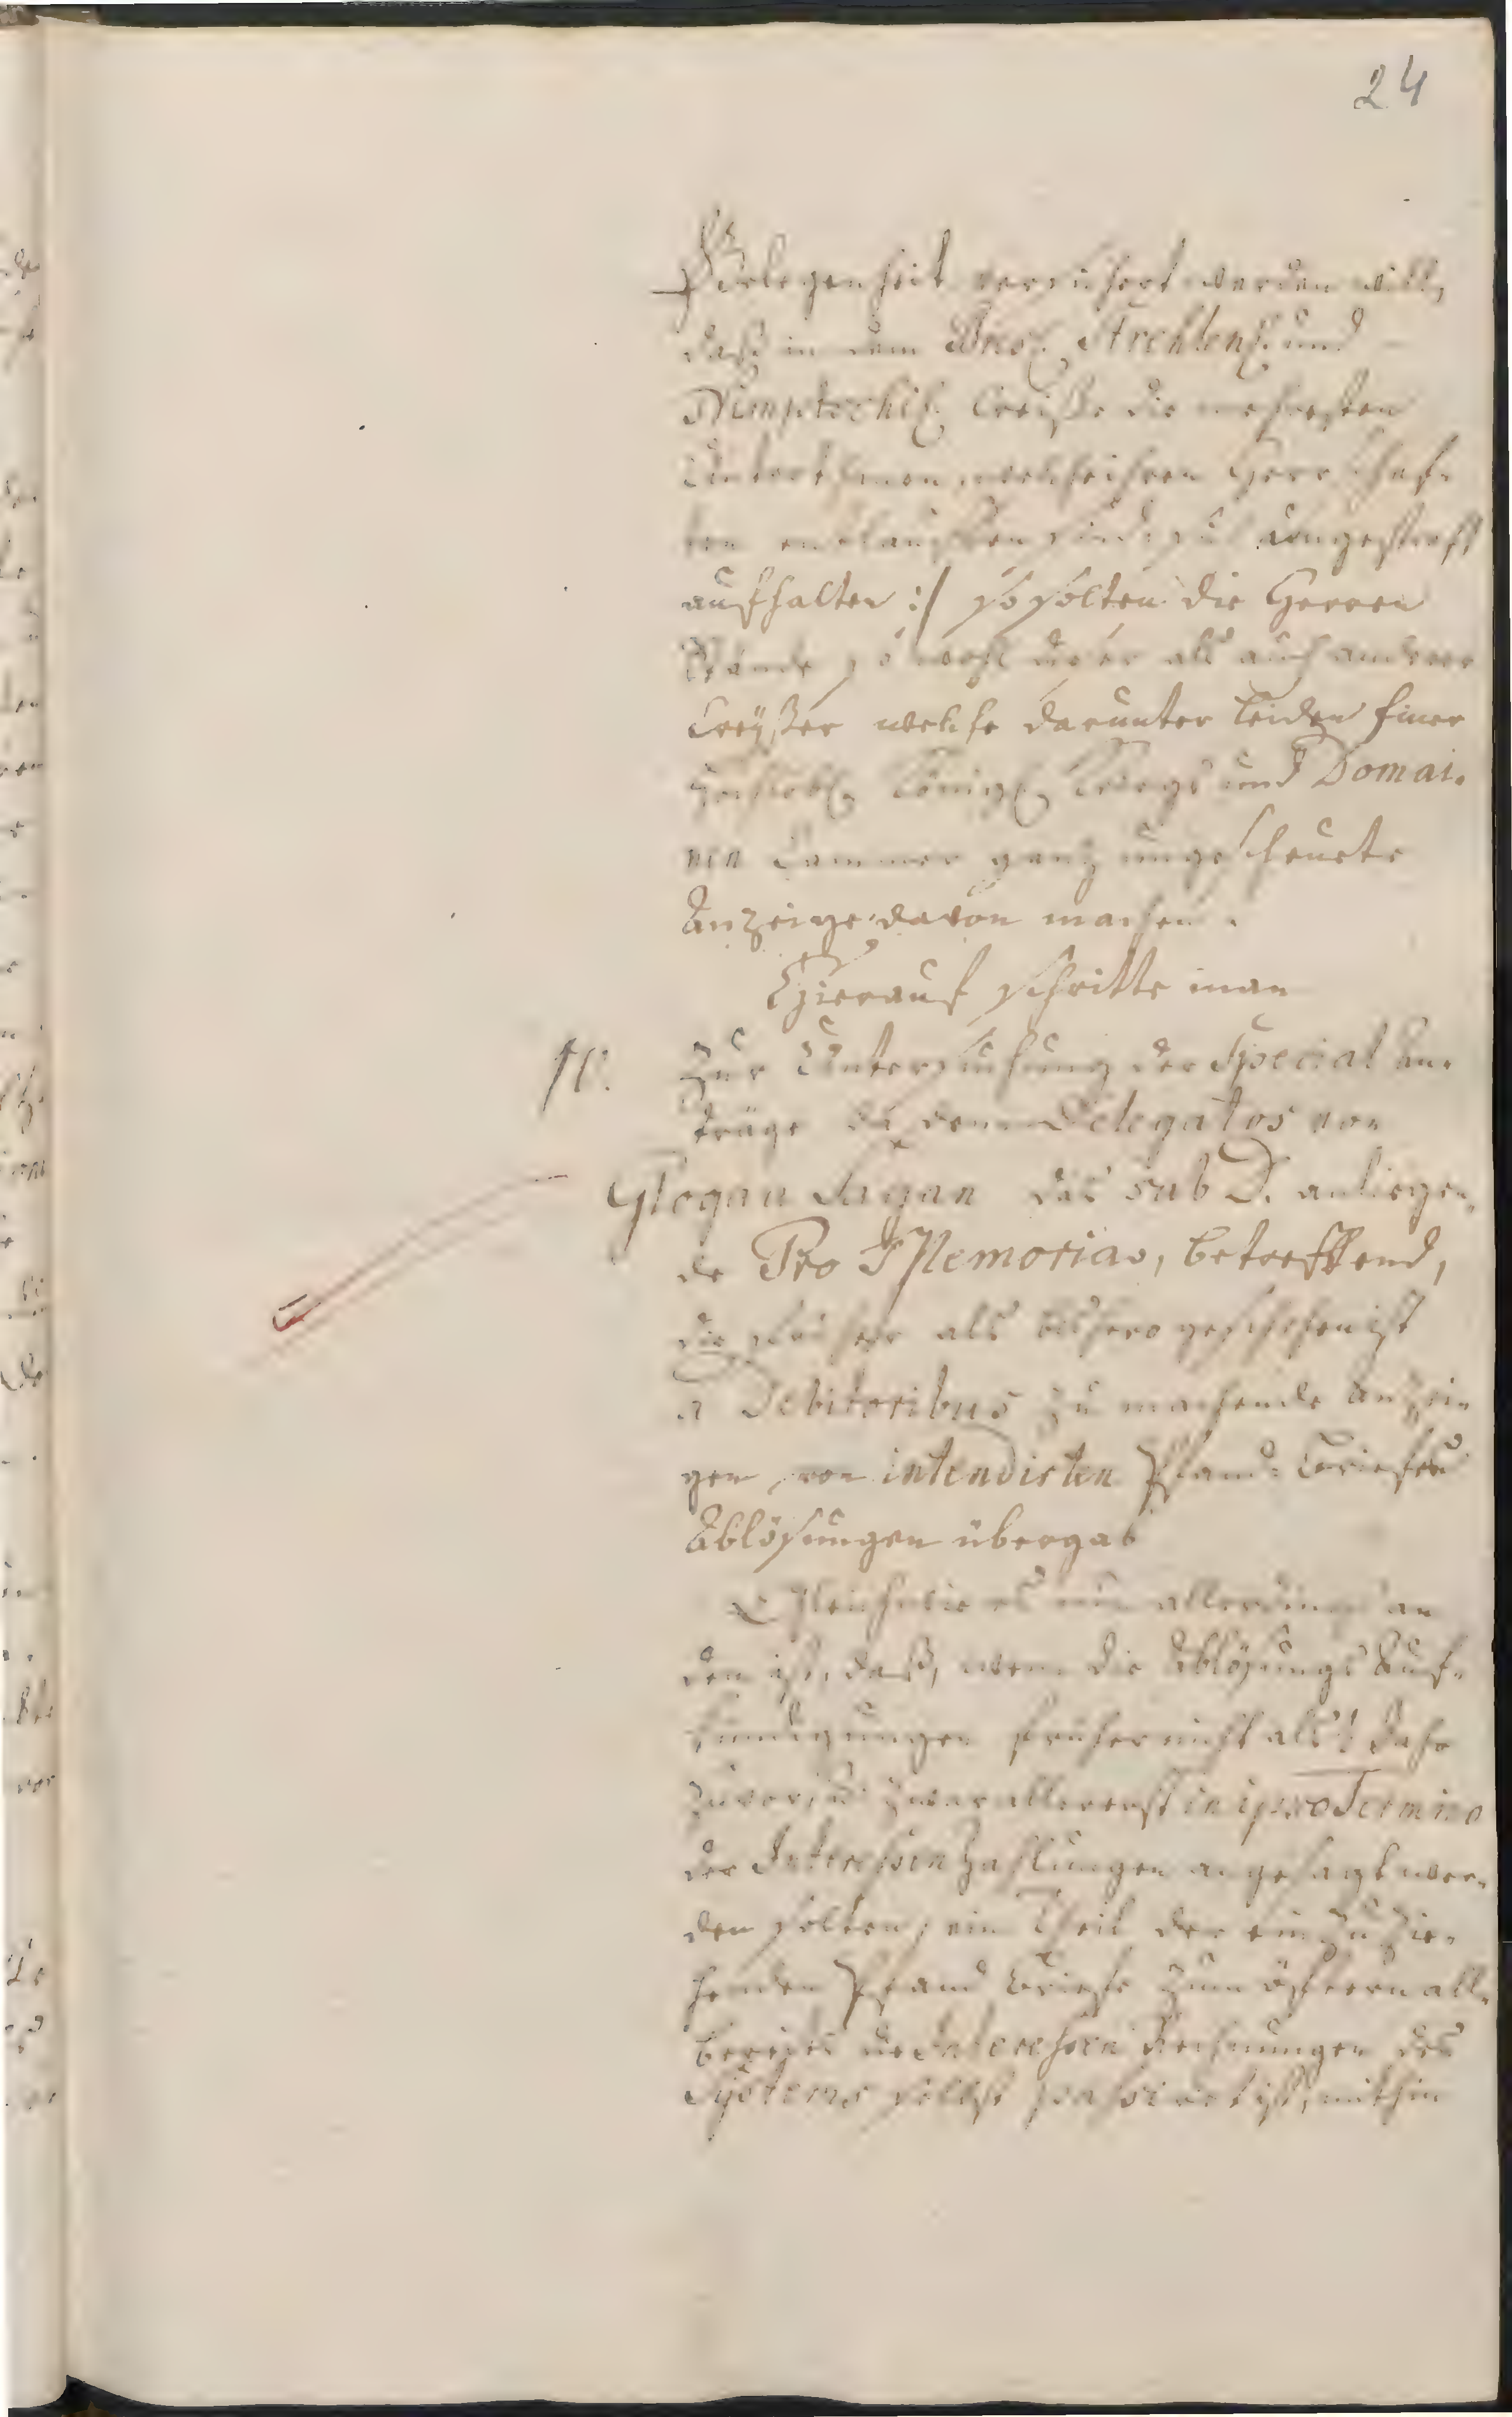 24
Gelegenheit versichert werden will,
daß in dem Bresl. Strehlensch. und
Nimptschisch. Creiße die mehresten
Unterthanen, welche ihren Herrschaf-
ten entlauffen sind, sich ungestraft
aufhalten :/ so solten die Herren
Stände so wohl dieser als auch anderer
Creyßer welche darunter leiden Einer
Hochlöbl. Königl. Kriegs und Domai-
nen Cammer gantz ungescheuete
Anzeige davon machen.
Hierauf schritte man
IV. zur Untersuchung der Special An-
träge da denn Delegatos von
Glogau Sagan das sub D. anliegen-
de Pro Memorias, betreffend,
die früher als bishero geschehen ist
a Debitoribus zu machende Anzei-
gen, von intendirten Pfand-Briefen
Ablösungen übergab
Gleichwie es nun allerdings an
dem ist, daß, wenn die Ablösungs Auf-
kündigungen früher nicht als 1/4 Jahr
zuvor, und zwar allererst in ipso Termino
der Interessen Zahlungen angesagt wer-
den solten, ein Theil der einzuzie-
henden Pfand Briefe zum öftern all-
bereits die Interessen Rechnungen des
Systems selbst passiret ist, mithin